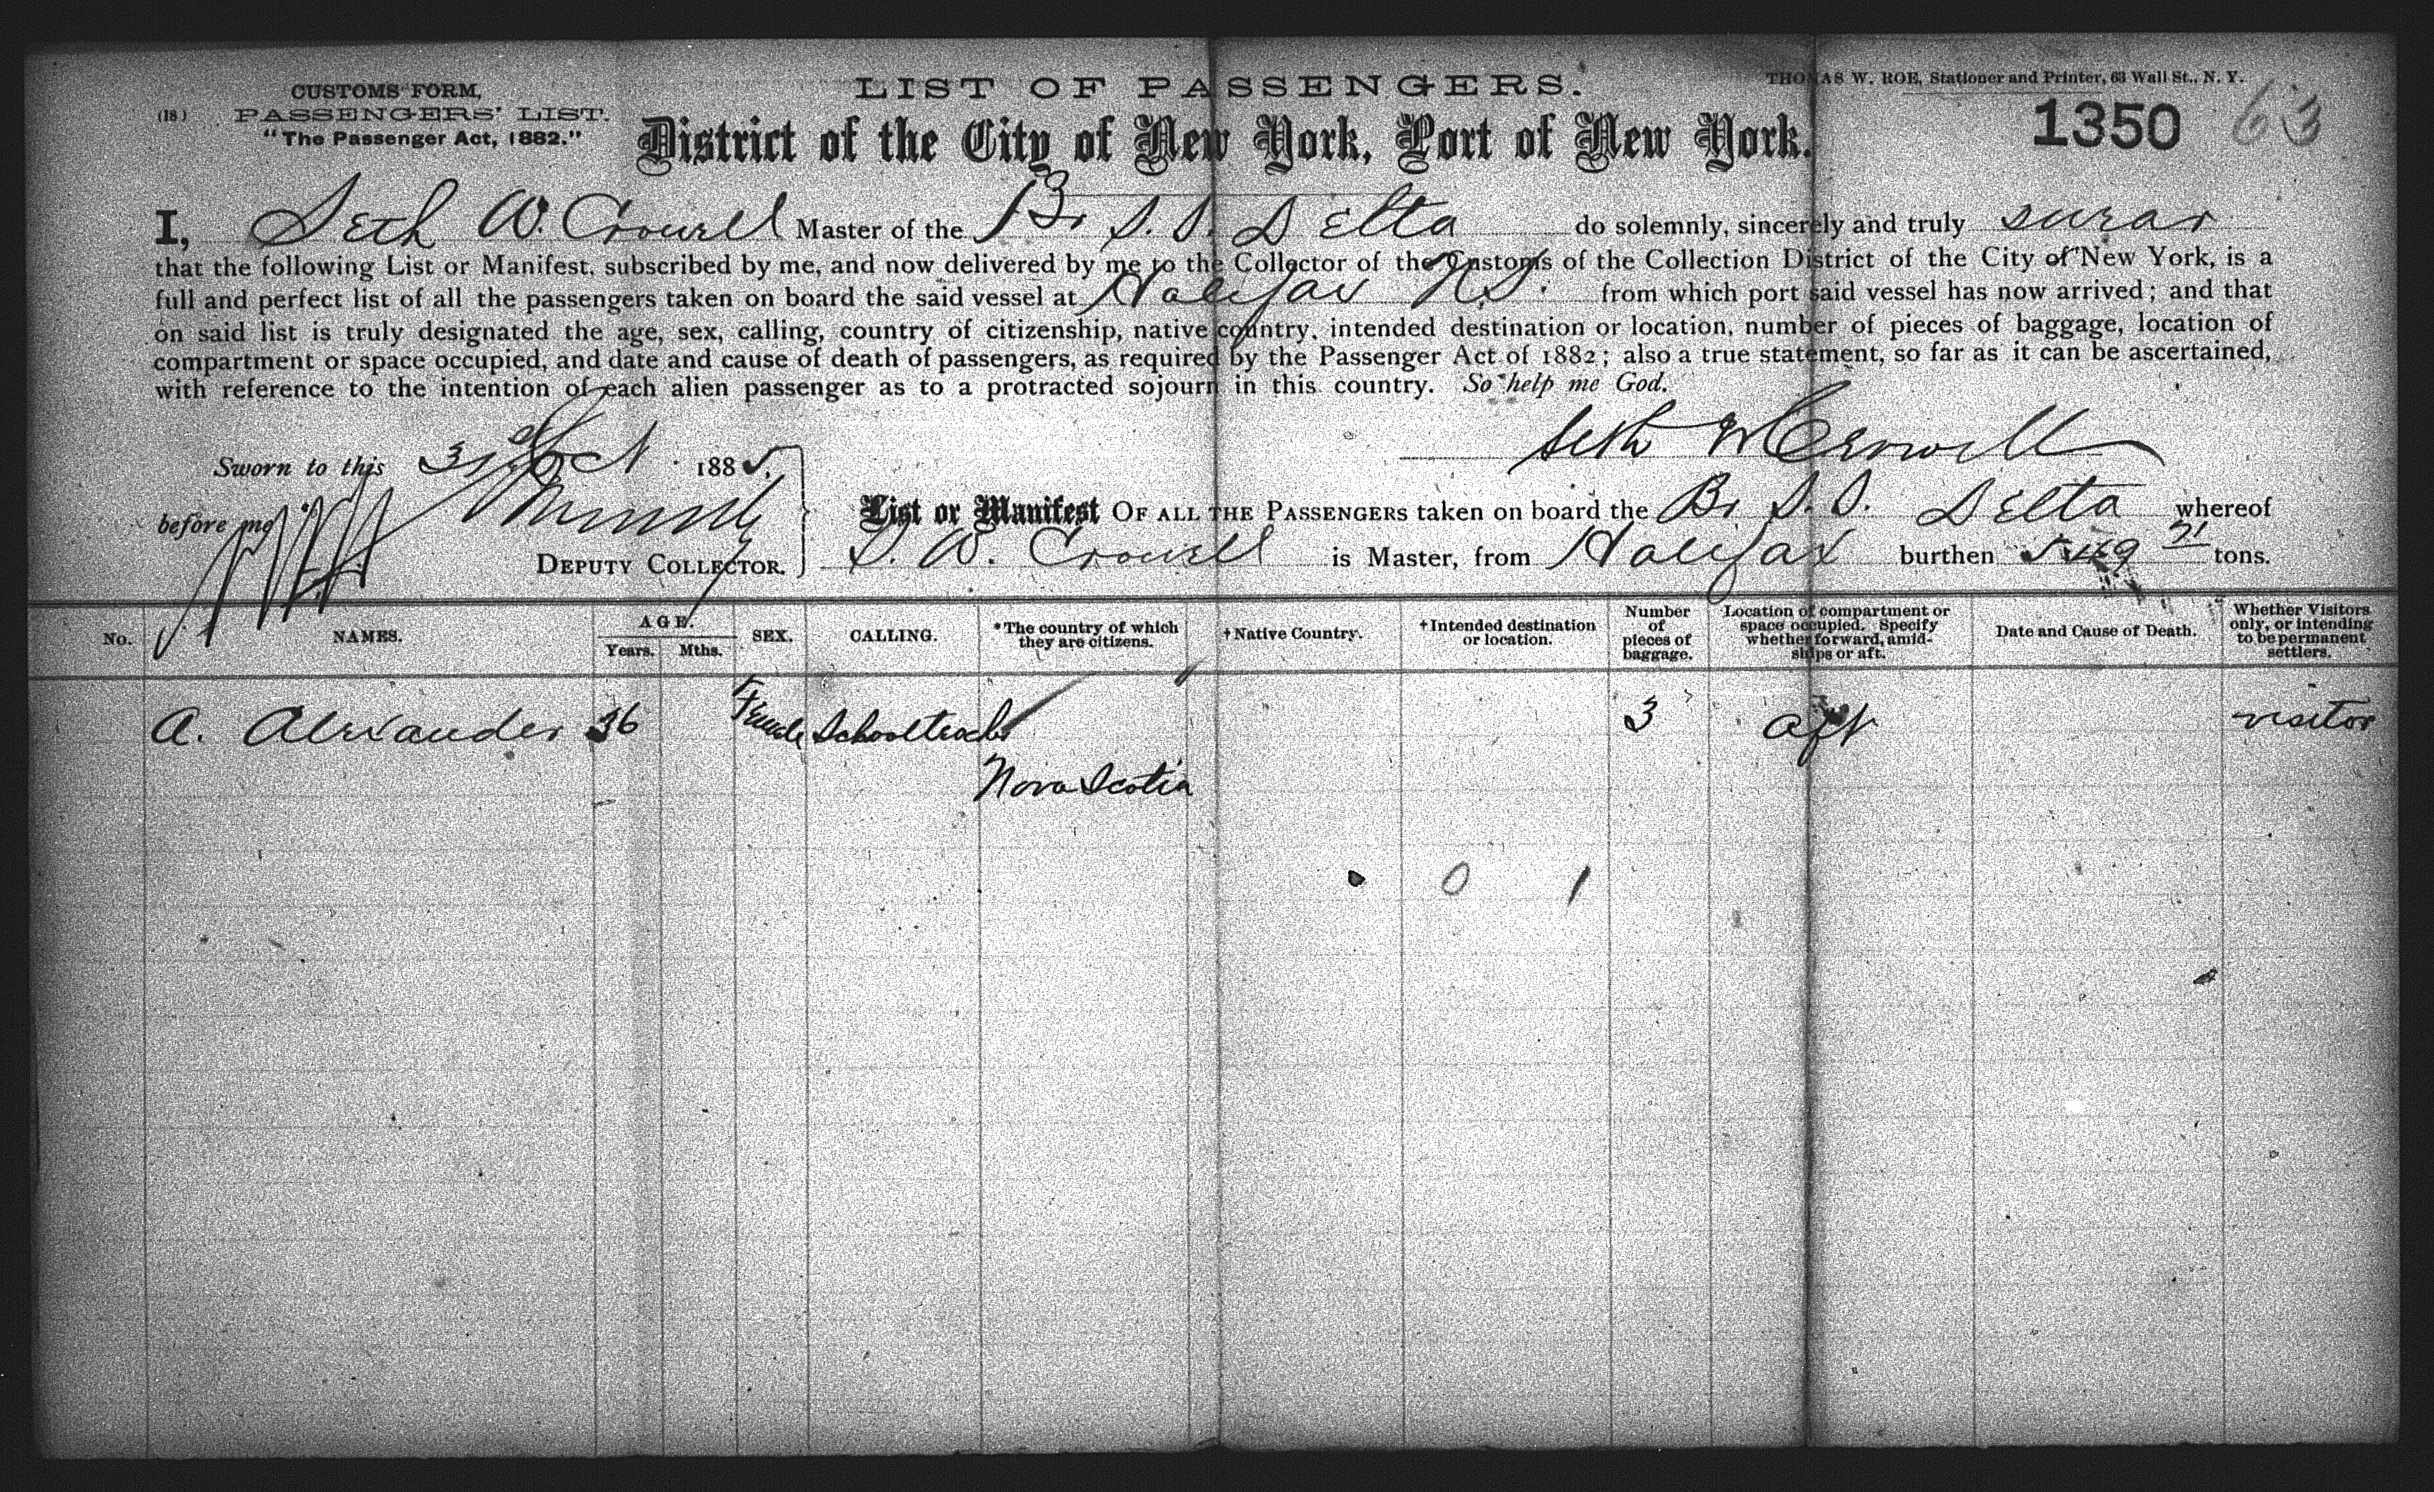 CUSTOMS FORM,
(18) PASSENGERS' LIST.
"The Passenger Act, 1882."
LIST OF PASSENGERS.
THOMAS W. ROE, Stationer and Printer, 63 Wall St., N. Y.
District of the City of New York, Port of New York.
1350 63
I, Seth W. Crowell Master of the Br S. S. Delta do solemnly, sincerely and truly swear
that the following List or Manifest, subscribed by me, and now delivered by me to the Collector of the Customs of the Collection District of the City of New York, is a
full and perfect list of all the passengers taken on board the said vessel at Halifax N.S. from which port said vessel has now arrived; and that
on said list is truly designated the age, sex, calling, country of citizenship, native country, intended destination or location, number of pieces of baggage, location of
compartment or space occupied, and date and cause of death of passengers, as required by the Passenger Act of 1882; also a true statement, so far as it can be ascertained,
with reference to the intention of each alien passenger as to a protracted sojourn in this country. So help me God.
Seth W Crowell
Sworn to this 31 Oct 1885.
before me
DEPUTY COLLECTOR.
List or Manifest OF ALL THE PASSENGERS taken on board the Br S. S. Delta whereof
S. W. Crowell is Master, from Halifax burthen tons.
No. NAMES. AGE. Years. Mths. SEX. CALLING. *The country of which they are citizens. †Native Country. †Intended destination or location. Number of pieces of baggage. Location of compartment or space occupied. Specify whether forward, amidships or aft. Date and Cause of Death. Whether Visitors only, or intending to be permanent settlers.
A. Alexander 36 Female Schoolteacher 3 aft visitor
Nova Scotia
0 1